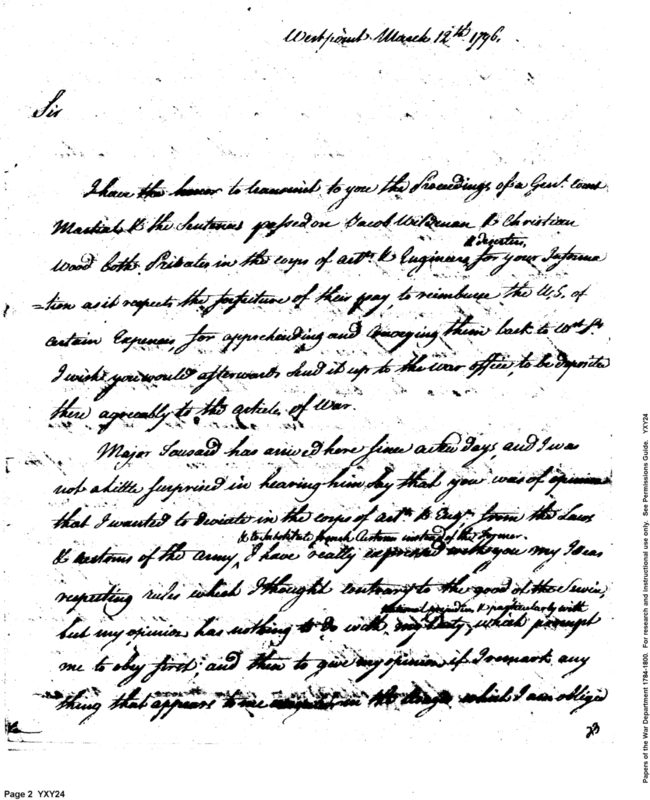 Westpoint March 12th. 1796.
Sir
I have the honor to transmit to you the Proceedings of a Genl. Court
Martial & the Sentences passed on Jacob Wildman & Christian
& deserters,
Wood both Privates in the corps of artts. & Engineers for your Informa
=tion as it respects the forfeiture of their pay to reimburse the U.S. of
certain Expences for apprehending and conveying them back to West Pt.
I wish you would afterwards send it up to the war office to be deposite
there agreeably to the articles of War.
Major Tousard has arrived here since a few days, and I was
not a little surprised in hearing him say that you was of opinion
that I wanted to deviate in the corps of artts. & Engrs. from the Laws
& to substitute french Customs instead of the former.
& customs of the army, I have really expressed with you my Ideas
respecting rules which I thought contrary to the good of the Service,
national prejudices & particularly with
but my opinion has nothing to do with my Duty, which prompt
me to obey first, and then to give my opinion if I remark any
thing that appears to me in the usages which I am oblige
23
Page 2 YXY24
Papers of the War Department 1784-1800. For research and instructional use only. See Permissions Guide. YXY24